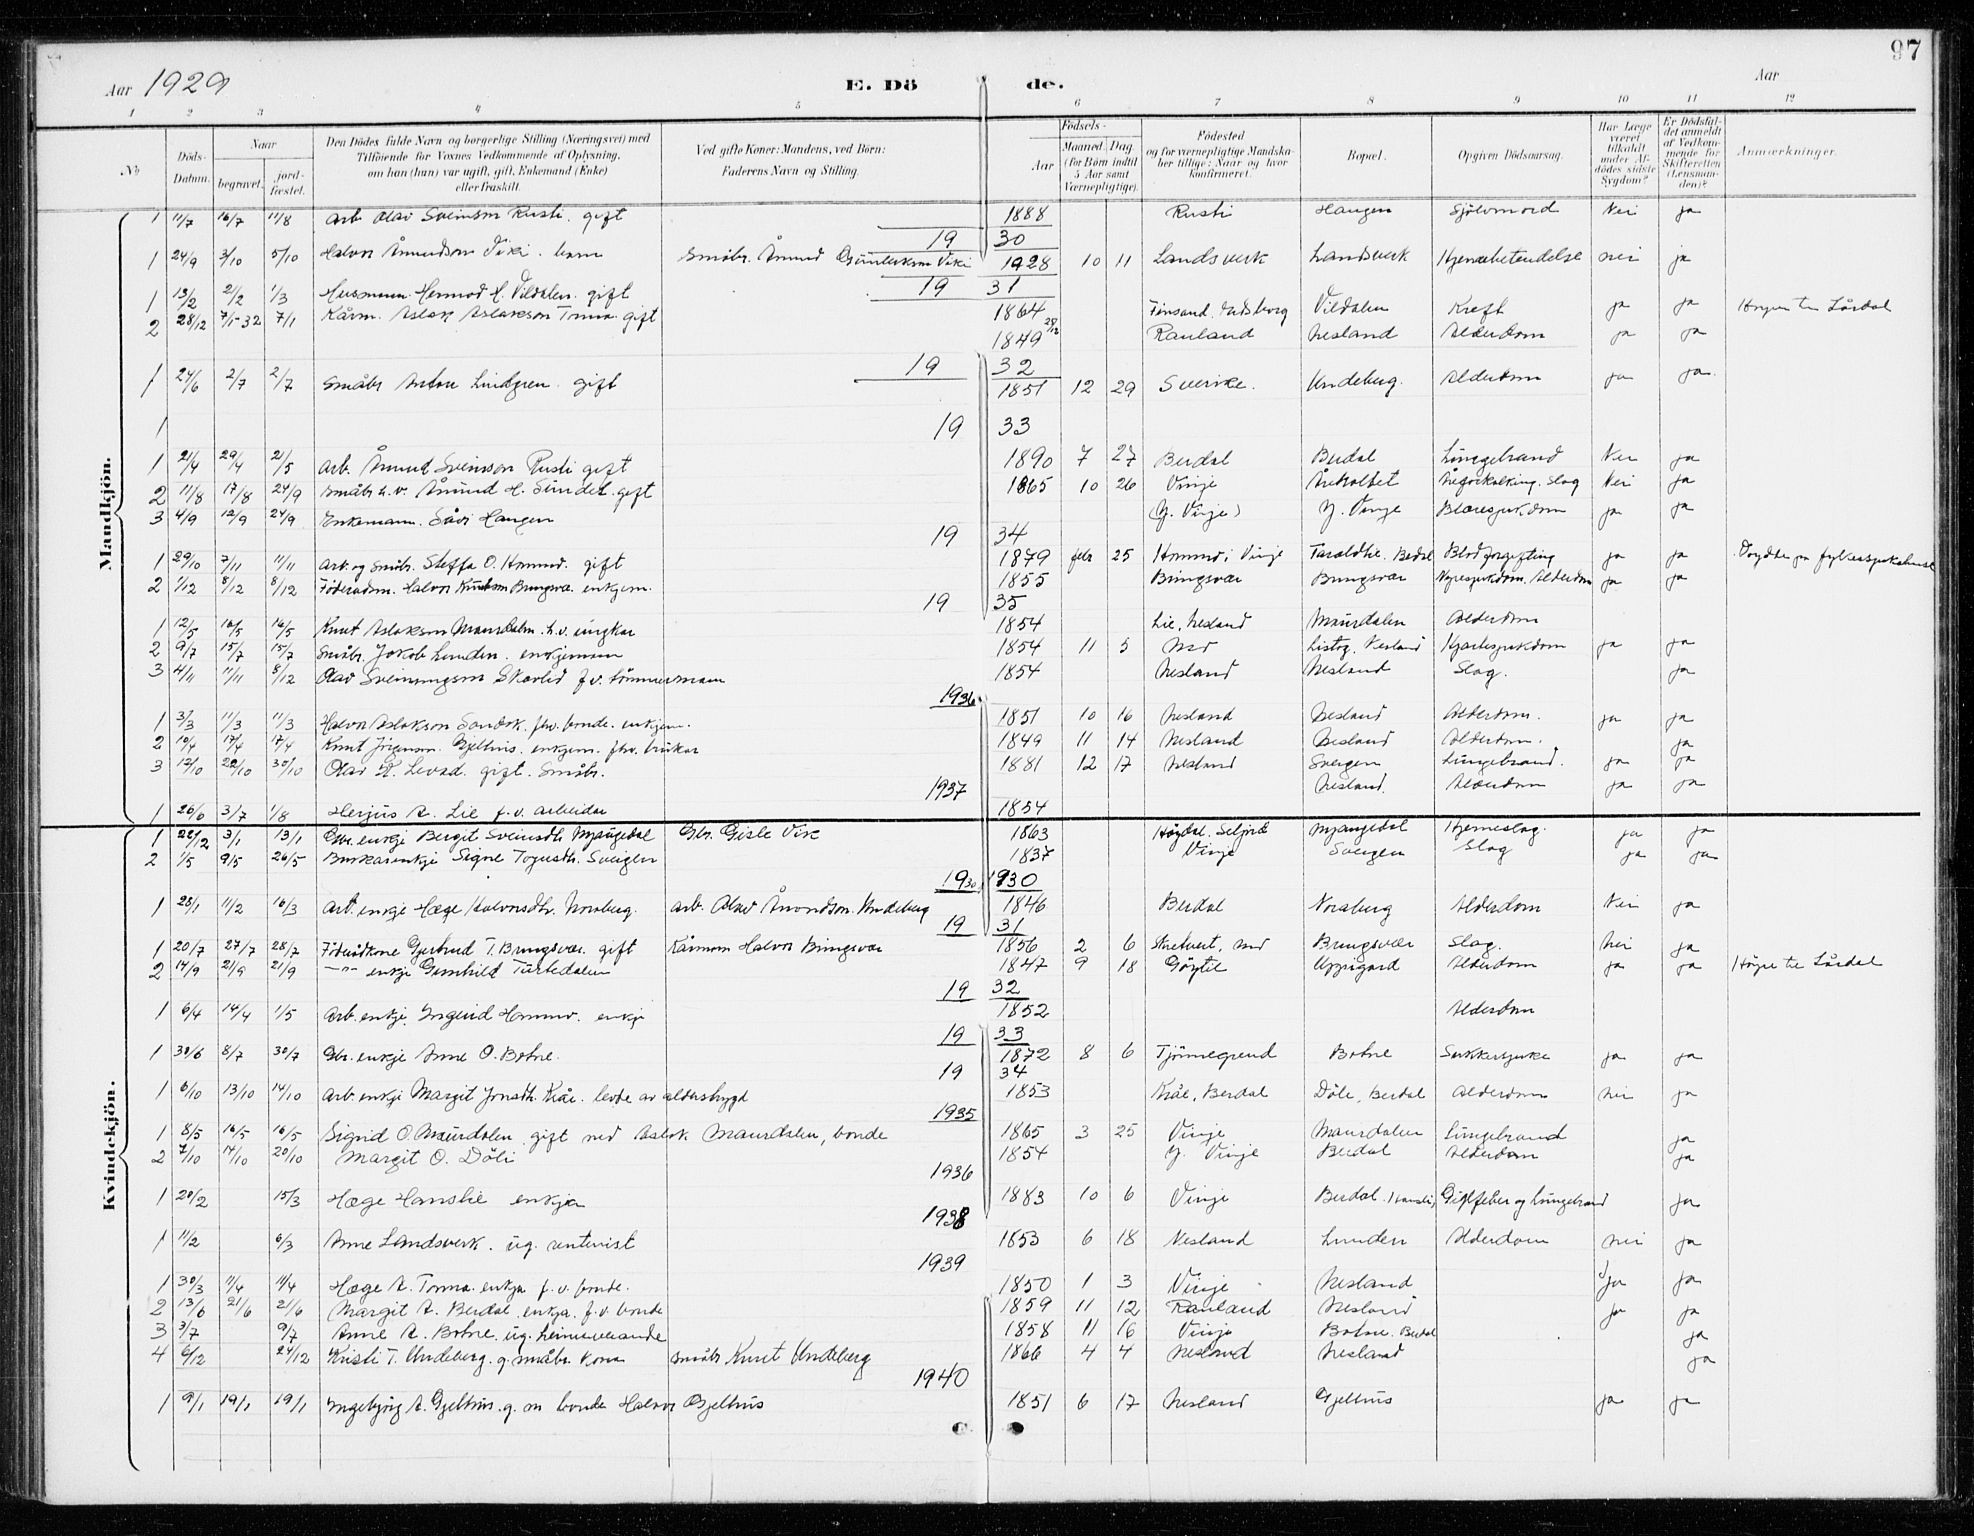 97
Aar 1929 E. Dö de. Aar
1 2 3 4 5 6 7 8 9 10 11 12
No
Döds-Datum.
Naar
begravet.
jord-fæstet.
Den Dödes fulde Navn og borgerlige Stilling (Næringsvei) med
Tilföiende for Voxnes Vedkommende af Oplysning,
om han (hun) var ugift, gift, Enkemand (Enke)
eller fraskilt.
Ved gifte Koner: Mandens, ved Börn:
Faderens Navn og Stilling.
Födsels-
Aar
Maaned Dag
(for Börn indtil
5 Aar samt
Værnepligtige).
Födested
og for værnepligtige Mandska-
ber tillige: Naar og hvor
konfirmeret.
Bopæl.
Opgiven Dödsaarsag.
Har Læge
været
tilkaldt
under Af-
dödes sidste
Sygdom?
Er Dödsfal-
det anmeldt
af Vedkom-
mende for
Skifteretten
(Lensman-
den)?
Anmærkninger.
Mandkjön.
1 11/7 16/7 11/8 Arb. Olav Sveinson Rusti. gift 1888 Rusti Haugen Sjölvmord Nei ja
19 30
1 24/9 3/10 5/10 Halvor Åmundson Viki. barn Småbr. Åmund Viki 1928 10 11 Landsverk Landsverk Hjernebetendelse nei ja
19 31
1 13/2 2/2 1/3 Husmann Hermod H. Vildalen. gift 1864 Vildalen Kreft ja ja Lårdal
2 28/12 7/1-32 7/1 Kårm. Aslak Aslakson Tonna gift 1849 28/12 Rauland Nesland Alderdom ja ja
19 32
1 24/6 2/7 2/7 Småbr. Anton Lindgren. gift 1851 12 29 Sverike. Undeberg. Alderdom ja ja
1 19 33
1 21/4 29/4 21/5 Arb. Åmund Sveinson Rusti gift 1890 7 27 Berdal Berdal Lungebrand Nei ja
2 11/8 17/8 24/9 Småbr. h.v. Åmund H. Sundet. gift 1865 10 26 Vinje Åreforkalking. Slag Nei ja
3 4/9 12/9 24/9 Enkemann. Såvi Haugen (Y. Vinje) Y. Vinje Blæresjukdom ja ja
19 34
1 29/10 7/11 11/11 Arb. og småbr. Steffa O. Hommo. gift 1879 febr 25 Hommo i Vinje Berdal Blodforgifting ja ja
2 1/12 8/12 8/12 Föderådsm. Halvor Knutson Bringsvæ. enkjem. 1855 Bringsvær Bringsvær Nyresjukdom. Alderdom ja ja
19 35
1 12/5 16/5 16/5 Knut Aslakson Maurdalen. h.v. ungkar 1854 Lie, Nesland Maurdalen Alderdom
2 9/7 15/7 15/7 Småbr. Jakob Lunden. enkjemann 1854 11 5 Mo Nesland Hjartesjukdom ja ja
3 4/11 11/11 8/12 Olav Sveinungson Skarlid f.v. tömmermann 1854 Nesland Nesland Slag. ja
1936
1 3/3 11/3 11/3 Halvor Aslakson Sandok. fhv. bonde. enkjem. 1851 10 16 Nesland Nesland Alderdom. ja ja
2 10/4 17/4 17/4 Knut Jörgenson Gjelhus. enkjem. fhv. brukar 1849 11 14 Nesland Nesland Alderdom. ja
3 12/10 22/10 30/10 Olav K. Levad. gift. Småbr. 1881 12 17 Nesland Sveigen Lungebrand. ja ja
1937 Nesland. Alderdom ja ja
1 26/6 3/7 1/8 Herjus A. Lie f.v. arbeidar 1854
Kvindekjön.
1 28/12 3/1 13/1 Gbr. enkje Bergit Sveinsdtr. Mjaugedal Gbr. Gisle Vik 1863 Högdal. Seljord Mjaugedal Hjerneslag. ja ja
2 1/5 9/5 26/5 Brukarenkje Signe Togusdtr. Sveigen 1837 Vinje Sveigen Slag ja ja
1930 1930
1 28/1 11/2 16/3 Arb. enkje Hæge Halvorsdtr. Noraberg. arb. Olav Åmondson Undeberg 1846 Berdal Noraberg Alderdom Nei ja
19 31
1 20/7 27/7 28/7 Föderådkone Gjertrud T. Bringsvær. gift Kårmann Halvor Bringsvær 1856 2 6 Mo Bringsvær Slag. Nei ja
2 14/9 21/9 21/9 —"— enkje Gunhild Turtedalen 1847 9 18 Göytil Uppigard Alderdom ja ja Höyre til Lårdal
19 32
1 6/4 14/4 1/5 Arb. enkje. Ingerid Hommo. enkje 1852 Alderdom
19 33
1 30/6 8/7 30/7 Gbr. enkje Anne O. Botne. 1872 8 6 Tjönnegrend Botne Sukkersjuke ja ja
19 34
1 6/10 13/10 14/10 Arb. enkje Margit Jonsdtr. Kåe. levde av alderstrygd 1853 Kåe, Berdal Döle, Berdal Alderdom Nei ja
1935
1 8/5 16/5 16/5 Sigrid O. Maurdalen. gift med Aslak Maurdalen, bonde 1865 3 25 Vinje Maurdalen Lungebrand ja
2 7/10 14/10 20/10 Margit O. Döli 1854 Y. Vinje Berdal Alderdom ja
1936
1 20/2 15/3 Hæge Hanslie enkja 1883 10 6 Vinje Berdal. Giktfeber og lungebrand ja
1938
1 11/2 6/3 Anne Landsverk. ug. rentenist 1853 6 18 Nesland Lunden Alderdom nei ja
1939
1 30/3 11/4 11/4 Hæge A. Tonna. enkja f.v. bonde. 1850 1 3 Vinje Nesland ja ja
2 13/6 21/6 21/6 Margit A. Berdal. enkja. f.v. bonde 1859 11 12 Rauland Nesland ja ja
3 3/7 9/7 Anne A. Botne. ug. heimeverande 1858 11 16 Vinje Botne. Berdal ja
4 6/12 24/12 Kristi T. Undeberg. g. småbr. kona småbr. Knut Undeberg 1866 4 4 Nesland Nesland ja
1940
1 9/1 19/1 19/1 Ingebjörg A. Gjelhus. g. m. bonde Halvor Gjelhus 1851 6 17 Nesland Gjelhus ja ja